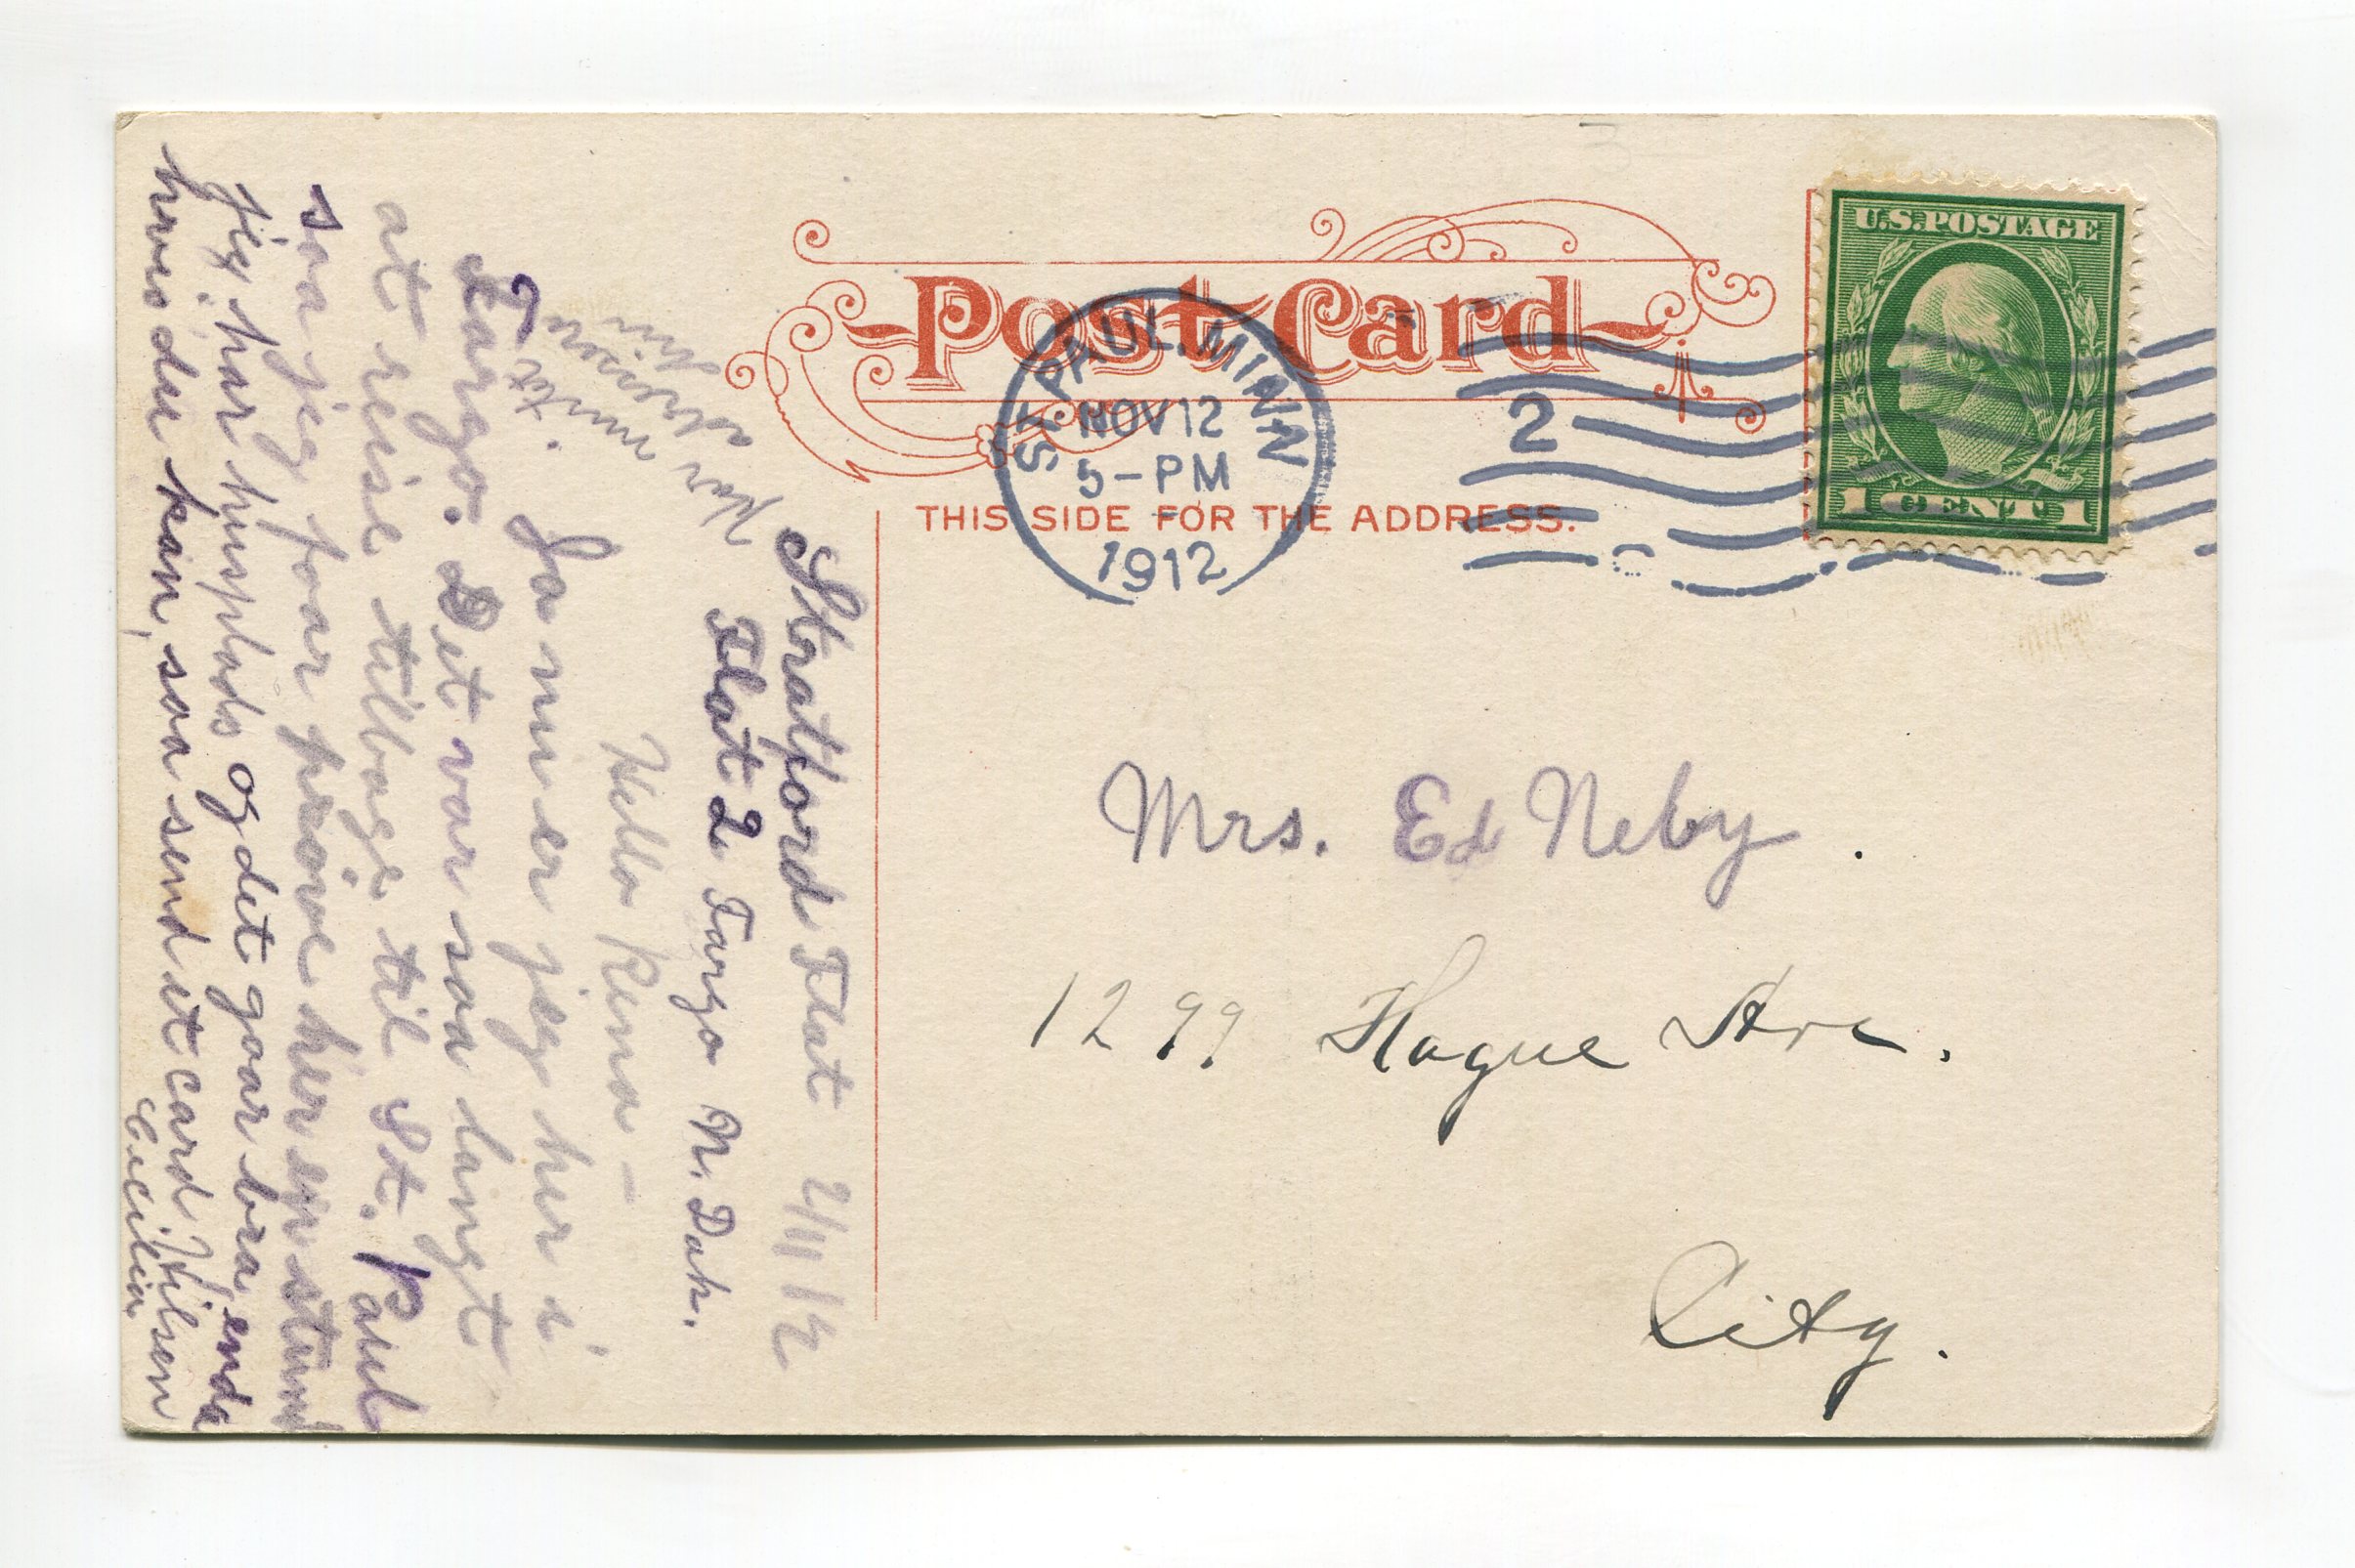 Post Card
THIS SIDE FOR THE ADDRESS.
U.S. POSTAGE
1 CENT 1
ST. PAUL. MINN
NOV 12
5-PM
1912
2
Mrs. Ed Neby.
1299 Hague Ave.
City.
Stratford Flat 2/11 12
Flat 2 Fargo N. Dak.
Hello Rena -
Ja nu er jeg her i
Fargo. Det var saa langt
at reise tilbage til St. Paul
saa jeg faar prøve her en stund
jeg har husplads og det gaar bra, enda
hvis du kan, saa send et card. Hilsen
Cecilia
har
adressen
din